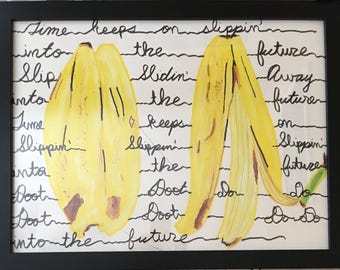 Time keeps on slippin'
into the future
Slip Slidin' Away
into the future
Time keeps on
Slippin' Slippin' Slippin'
into the future
Doot Doot Do Do
Doot Doot Do Do
into the future